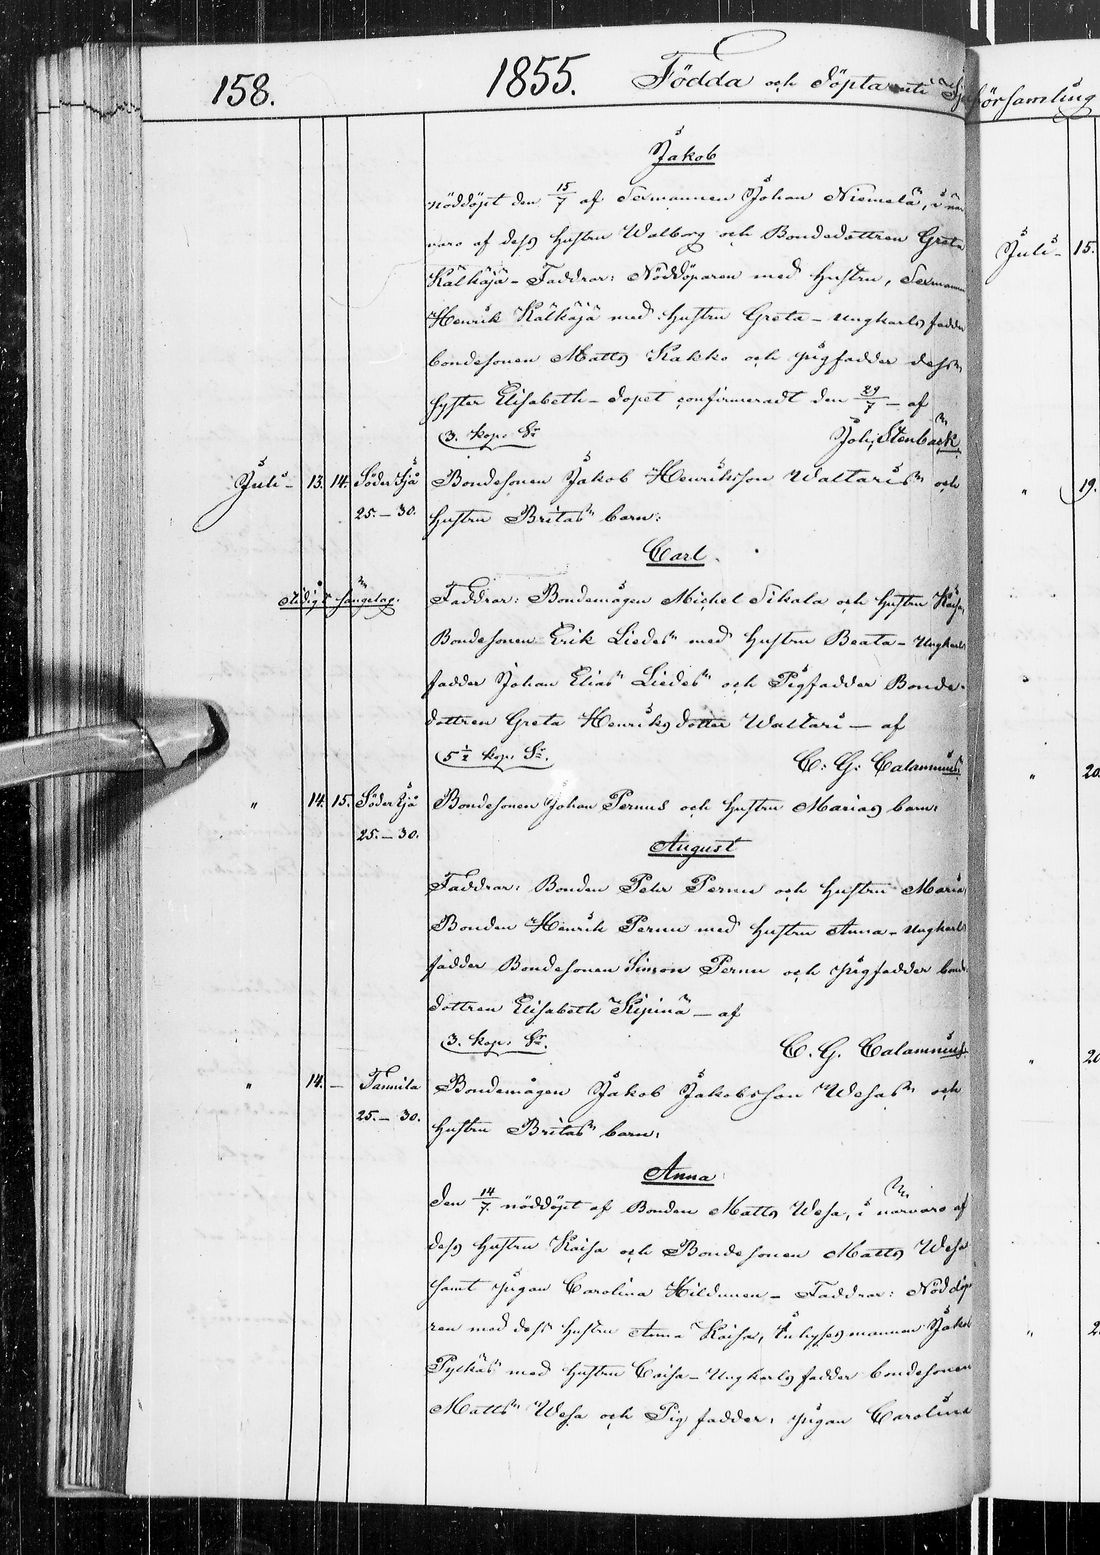 158. 1855. Födda och döpta uti
församling
Jakob
nöddöpt den 15/7 af Sexmannen Johan Niemelä, i när
varo af dess hustru Walborg och Bondedottren Greta
Kälkäjä – Faddrar: Nöddöparen med hustru, Sexmannen
Henrik Kälkäjä med hustru Greta – Ungkarls fadder
bondesonen Matts Kakko och pigfadder dess
syster Elisabeth – dopet confirmeradt den 29/7 – af
3. kop. Sr Joh. Stenbäck
Juli – 13. 14. Söder Ijå Bondesonen Jakob Henriksson Waltaris och
25. – 30. hustru Britas barn:
Carl
Faddrar: Bondemågen Michel Sikala och hustru Kaisa,
Bondesonen Erik Liedes med hustru Beata – Ungkarls
fadder Johan Elias Liedes och Pigfadder Bonde-
dottren Greta Henriks dotter Waltari – af
5 1/2 kop. Sr. C. G. Calamnius.
" 14. 15. Söder Ijå Bondesonen Johan Pernus och hustru Marias barn:
25. – 30.
August
Faddrar: Bonden Pehr Pernu och hustru Maria,
Bonden Henrik Pernu med hustru Anna – Ungkarls
fadder Bondesonen Simon Pernu och pigfadder bonde
dottren Elisabeth Kipinä – af
3. kop. Sr. C. G. Calamnius.
" 14. – Tannila Bondemågen Jakob Jakobsson Wesas och
25. – 30. hustru Britas barn:
Anna
den 14/7 nöddöpt af Bonden Matts Wesa, i närvaro af
dess hustru Kaisa och Bondesonen Matts Wesa
samt pigan Carolina Hildunen – Faddrar: Nöddöpa
ren med dess hustru Anna Kaisa, Inhysesmannen Jakob
Pylkäs med hustru Caisa – Ungkarls fadder bondesonen
Matts Wesa och Pig fadder: pigan Carolina
Juli – 15.
" 19.
" 20.
" 20
"